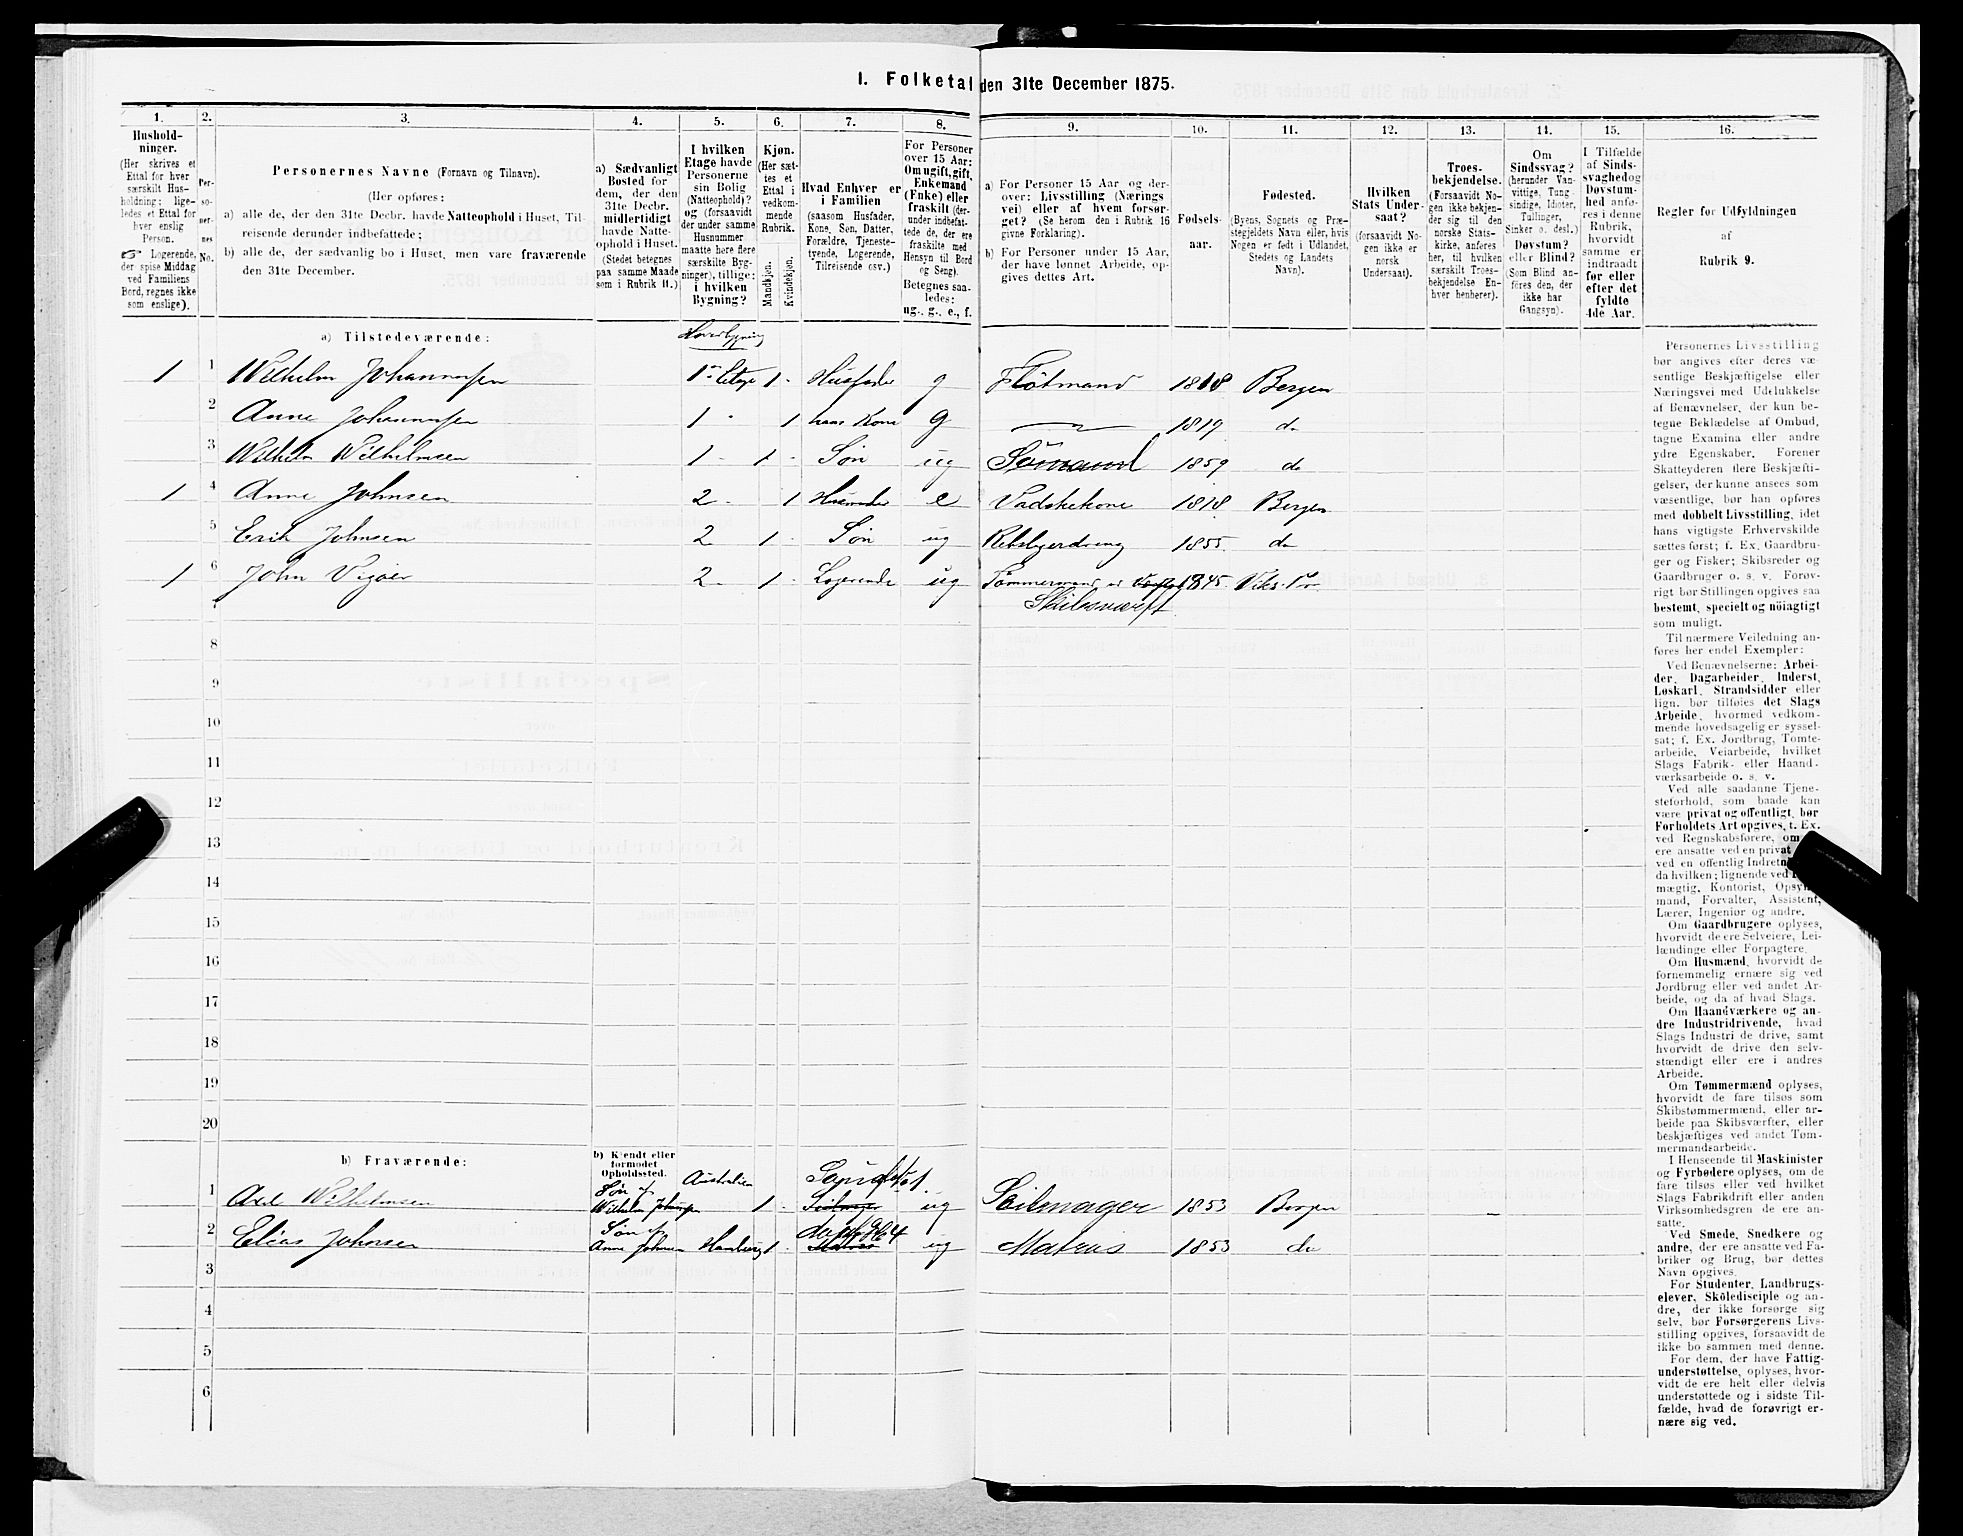 1. Folketal den 31te December 1875.
1. 2. 3. 4. 5. 6. 7. 8. 9. 10. 11. 12. 13. 14. 15. 16.
Hushold-
ninger.
(Her skrives et
Ettal for hver
særskilt Hus-
holdning; lige-
ledes et Ettal for
hver enslig
Person.
☞ Logerende,
der spise Middag
ved Familiens
Bord, regnes ikke
som enslige).
Per-
so-
ner-
nes
No.
Personernes Navne (Fornavn og Tilnavn).
(Her opføres:
a) alle de, der den 31te Decbr. havde Natteophold i Huset, Til-
reisende derunder indbefattede;
b) alle de, der sædvanlig bo i Huset, men vare fraværende
den 31te December.
a) Sædvanligt
Bosted for
dem, der den
31te Decbr.
midlertidigt
havde Natte-
ophold i Huset.
(Stedet betegnes
paa samme Maade
som i Rubrik 11.)
I hvilken
Etage havde
Personerne
sin Bolig
(Natteophold)?
og (forsaavidt
der under samme
Husnummer
maatte høre flere
særskilte Byg-
ninger), tillige:
i hvilken
Bygning?
Kjøn.
(Her sæt-
tes et
Ettal i
vedkom-
mende
Rubrik.
Mandkjøn.
Kvindekjøn.
Hvad Enhver er
i Familien
(saasom Husfader,
Kone, Søn, Datter,
Forældre, Tjeneste-
tyende, Logerende,
Tilreisende osv.)
For Personer
over 15 Aar:
Om ugift, gift,
Enkemand
(Enke) eller
fraskilt (der-
under indbefat-
tede de, der ere
fraskilte med
Hensyn til Bord
og Seng).
Betegnes saa-
ledes:
ug., g., e., f.
a) For Personer 15 Aar og der-
over: Livsstilling (Nærings
vei) eller af hvem forsør-
get? (Se herom den i Rubrik 16
givne Forklaring).
b) For Personer under 15 Aar,
der have lønnet Arbeide, op-
gives dettes Art.
Fødsels-
aar.
Fødested.
(Byens, Sognets og Præ-
stegjeldets Navn eller, hvis
Nogen er født i Udlandet,
Stedets og Landets
Navn).
Hvilken
Stats Under-
saat?
(forsaavidt No-
gen ikke er
norsk
Undersaat).
Troes-
bekjendelse.
(Forsaavidt No-
gen ikke bekjen-
der sig til den
norske Stats-
kirke, anføres
her, til hvilken
særskilt Troes-
bekjendelse En-
hver henhører).
Om
Sindssvag?
(herunder Van-
vittige, Tung-
sindige, Idioter,
Tullinger,
Sinker o. desl.)
Døvstum?
eller Blind?
(Som Blind an-
føres den, der
ikke har
Gangsyn).
I Tilfælde
af Sinds-
svaghed og
Døvstum-
hed anfø-
res i denne
Rubrik,
hvorvidt
samme er
indtraadt
før eller
efter det
fyldte
4de Aar.
Regler for Udfyldningen
af
Rubrik 9.
a) Tilstedeværende:
Hovedbygning
1 1 Wilhelm Johannesen 1ste Etage 1 Husfader g Fløtmand 1818 Bergen
2 Anne Johannesen 1 1 hans Kone g 1819 do
3 Wilhelm Wilhelmsen 1 1 Søn ug Sømand 1859 do
1 4 Anne Johnsen 2 1 Husmoder e Vadskekone 1818 Bergen
5 Erik Johnsen 2 1 Søn ug Rebslagerdreng 1855 do
1 6 John Vigøer 2 1 Logerende ug Tømmermand ved 1845 Viks Pr
7 Skibsværft
8
9
10
11
12
13
14
15
16
17
18
19
20
b) Fraværende:
b) Kjendt eller
formodet
Opholdssted.
1 Axel Wilhelmsen Søn af Wilhelm Johansen Australien 1 ug Seilmager 1853 Bergen
2 Elias Johnsen Søn af Anne Johnsen Hamburg 1 ug Matros 1853 do
3
4
5
6
Personernes Livsstilling
bør angives efter deres væ-
sentlige Beskjæftigelse eller
Næringsvei med Udelukkelse
af Benævnelser, der kun be-
tegne Beklædelse af Ombud,
tagne Examina eller andre
ydre Egenskaber. Forener
Skatteyderen flere Beskjæfti-
gelser, der kunne ansees som
væsentlige, bør han opføres
med dobbelt Livsstilling, idet
hans vigtigste Erhvervskilde
sættes først; f. Ex. Gaardbru-
ger og Fisker; Skibsreder og
Gaardbruger o. s. v. Forøv-
rigt bør Stillingen opgives saa
bestemt, specielt og nöiagtigt
som muligt.
Til nærmere Veiledning an-
føres her endel Exempler:
Ved Benævnelserne: Arbei-
der, Dagarbeider, Inderst,
Løskarl, Strandsidder eller
lign. bør tilføies det Slags
Arbeide, hvormed vedkom-
mende hovedsagelig er syssel-
sat; f. Ex. Jordbrug, Tomte-
arbeide, Veiarbeide, hvilket
Slags Fabrik- eller Haand-
værksarbeide o. s. v.
Ved alle saadanne Tjene-
steforhold, som baade kan
være privat og offentligt, bør
Forholdets Art opgives, t. Ex.
ved Regnskabsførere, om
ere ansatte ved en privat
ved en offentlig Indretn
da hvilken; lignende ved
mægtig, Kontorist, Opsyns
mand, Forvalter, Assistent,
Lærer, Ingeniør og andre.
Om Gaardbrugere oplyses,
hvorvidt de ere Selveiere, Lei-
lændinge eller Forpagtere.
Om Husmænd, hvorvidt de
fornemmelig ernære sig ved
Jordbrug eller ved andet Ar-
beide, og da af hvad Slags.
Om Haandværkere og an-
dre Industridrivende, hvad
Slags Industri de drive, samt
hvorvidt de drive den selv-
stændigt eller ere i andres
Arbeide.
Om Tømmermænd oplyses,
hvorvidt de fare tilsøs som
Skibstømmermænd, eller ar-
beide paa Skibsværfter, eller
beskjæftiges ved andet Tøm-
mermandsarbeide.
I Henseende til Maskinister
og Fyrbødere oplyses, om de
fare tilsøs eller ved hvilket
Slags Fabrikdrift eller anden
Virksomhedsgren de ere an-
satte.
Ved Smede, Snedkere og
andre, der ere ansatte ved Fa-
briker og Brug, bør dettes
Navn opgives.
For Studenter, Landbrugs-
elever, Skôledisciple og an-
dre, der ikke forsørge sig
selv, bør Forsørgerens Livs-
stilling opgives, forsaavidt de
ikke bo sammen med denne.
For dem, der have Fattig-
understøttelse, oplyses, hvor-
vidt de ere helt eller delvis
understøttede og i sidste Til-
fælde, hvad de forøvrigt er-
nære sig ved.